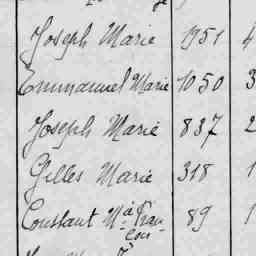 Joseph Marie 1951 4
Emmanuel Marie 1050 3
Joseph Marie 837 2
Gilles Marie 318 1
Constant Mie Fran- 89 1
çois